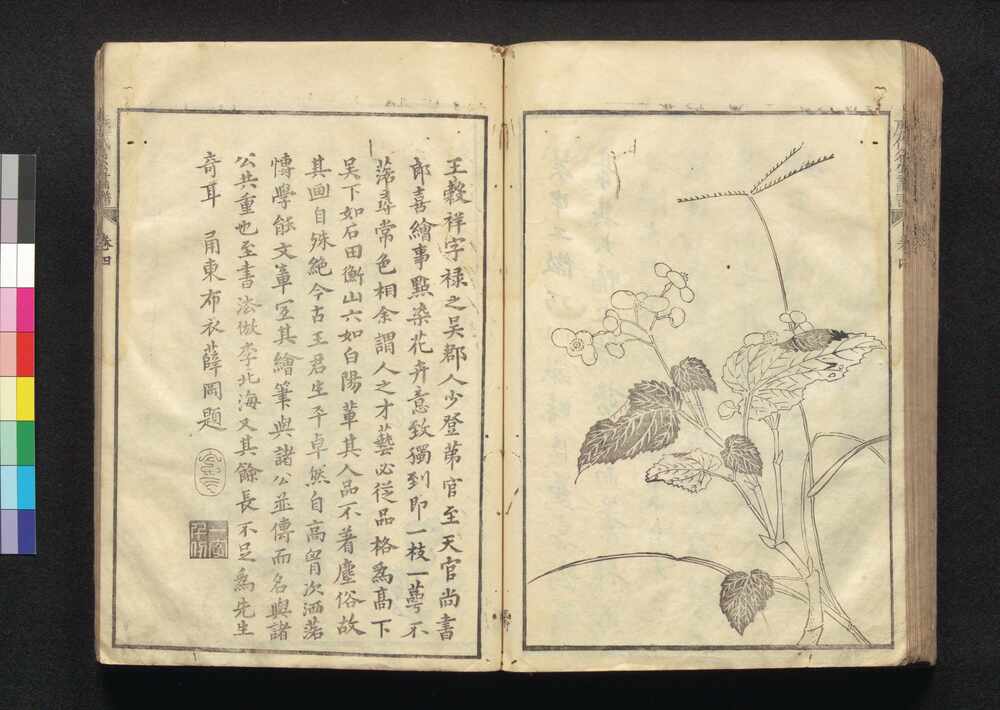 王穀祥字禄之吴郡人少登苐官至天官尚書
郎喜繪事點染花卉意致獨到即一枝一萼不
落尋常色相余謂人之才藝必從品格為髙下
吴下如石田衡山六如白陽軰其人品不着塵俗故
其画自殊絶今古王君生平卓然自高胷次洒落
博學能文章宜其繪筆與諸公並傳而名與諸
公共重也至書法倣李北海又其餘長不足為先生
奇耳 甬東布衣薛岡題
卷四